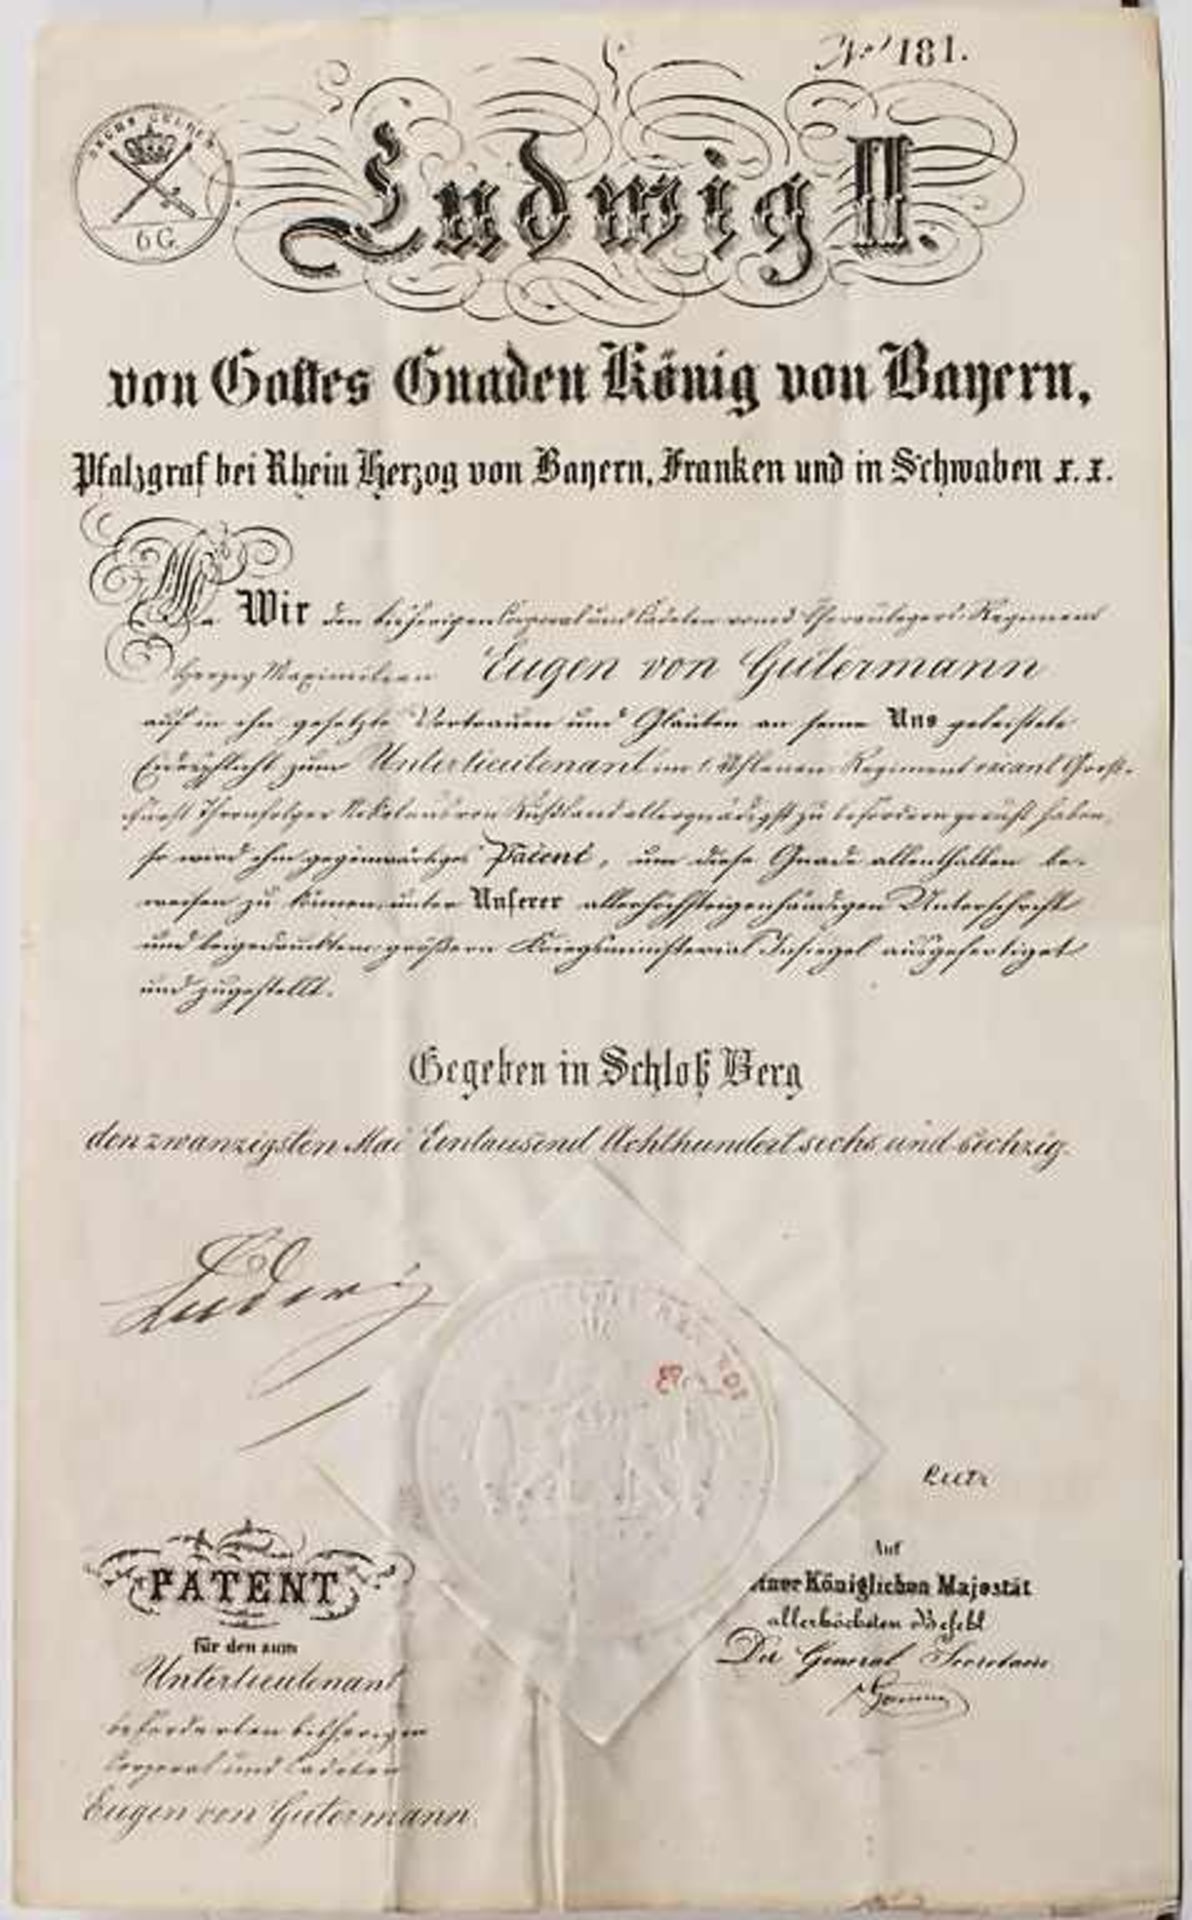 No 181.
SECHS GULDEN
6 G.
Ludwig II.
von Gottes Gnaden König von Bayern,
Pfalzgraf bei Rhein Herzog von Bayern, Franken und in Schwaben x. x.
Da Wir den bisherigen Corporal und Cadeten vom Chevaulegers-Regiment
Herzog Maximilian Eugen von Gutermann
auf in ihn gesetztes Vertrauen und Glauben an seine Uns geleistete
Eidespflicht zum Unterlieutenant im 1. Uhlanen-Regiment vacant Groß-
fürst Thronfolger Nikolaus von Rußland allergnädigst zu befördern geruht haben,
so wird ihm gegenwärtiges Patent, um diese Gnade allenthalben be-
weisen zu können, unter Unserer allerhöchsteigenhändigen Unterschrift
und beigedrucktem größern Kriegsministerial Insiegel ausgefertiget
und zugestellt.
Gegeben in Schloß Berg
den zwanzigsten Mai Eintausend Achthundert sechs und sechzig.
Ludwig
PATENT
für den zum
Unterlieutenant
beförderten bisherigen
Corporal und Cadeten
Eugen von Gutermann.
Auf
Königlichen Majestät
allerhöchsten Befehl
Der General Secretaire